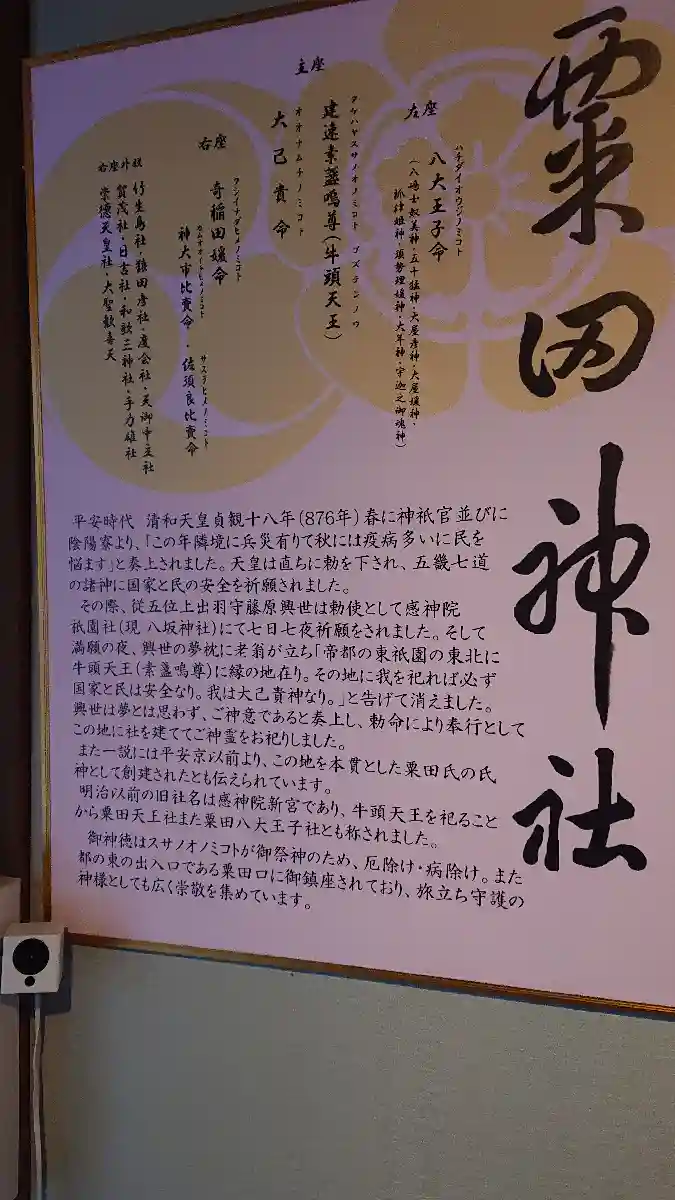 粟田神社
左座
ハチダイオウジノミコト
八大王子命
(八嶋士奴美神・五十猛神・大屋彦神・大屋媛神・
抓津姫神・須勢理媛神・大年神・宇迦之御魂神)
主座
タケハヤスサノオノミコト ゴズテンノウ
建速素盞嗚尊(牛頭天王)
オオナムチノミコト
大己貴命
右座
クシイナダヒメノミコト
奇稲田媛命
カムオオイチヒメノミコト サスラヒメノミコト
神大市比賣命・佐須良比賣命
右座外
竹生島社・猿田彦社・度会社・天御中主社
賀茂社・日吉社・和歌三神社・手力雄社
崇徳天皇社・大聖歓喜天
平安時代 清和天皇貞観十八年(876年)春に神祇官並びに
陰陽寮より、「この年隣境に兵災有りて秋には疫病多いに民を
悩ます」と奏上されました。天皇は直ちに勅を下され、五畿七道
の諸神に国家と民の安全を祈願されました。
その際、従五位上出羽守藤原興世は勅使として感神院
祇園社(現 八坂神社)にて七日七夜祈願をされました。そして
満願の夜、興世の夢枕に老翁が立ち「帝都の東祇園の東北に
牛頭天王(素盞嗚尊)に縁の地在り。その地に我を祀れば必ず
国家と民は安全なり。我は大己貴神なり。」と告げて消えました。
興世は夢とは思わず、ご神意であると奏上し、勅命により奉行として
この地に社を建ててご神霊をお祀りしました。
また一説には平安京以前より、この地を本貫とした粟田氏の氏
神として創建されたとも伝えられています。
明治以前の旧社名は感神院新宮であり、牛頭天王を祀ること
から粟田天王社また粟田八大王子社とも称されました。
御神徳はスサノオノミコトが御祭神のため、厄除け・病除け。また
都の東の出入口である粟田口に御鎮座されており、旅立ち守護の
神様としても広く崇敬を集めています。